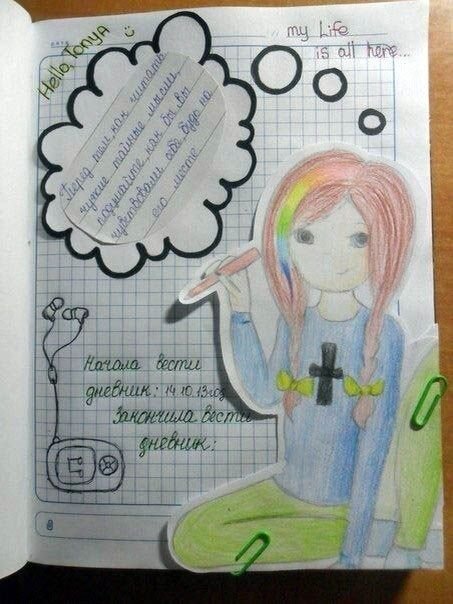 Hello, Tonya
my Life
is all here...
Перед тем как читать
чужие тайные мысли,
подумайте, как бы вы
чувствовали себя будь на
его месте
Начала вести
дневник: 14.10.13год
Закончила вести
дневник: